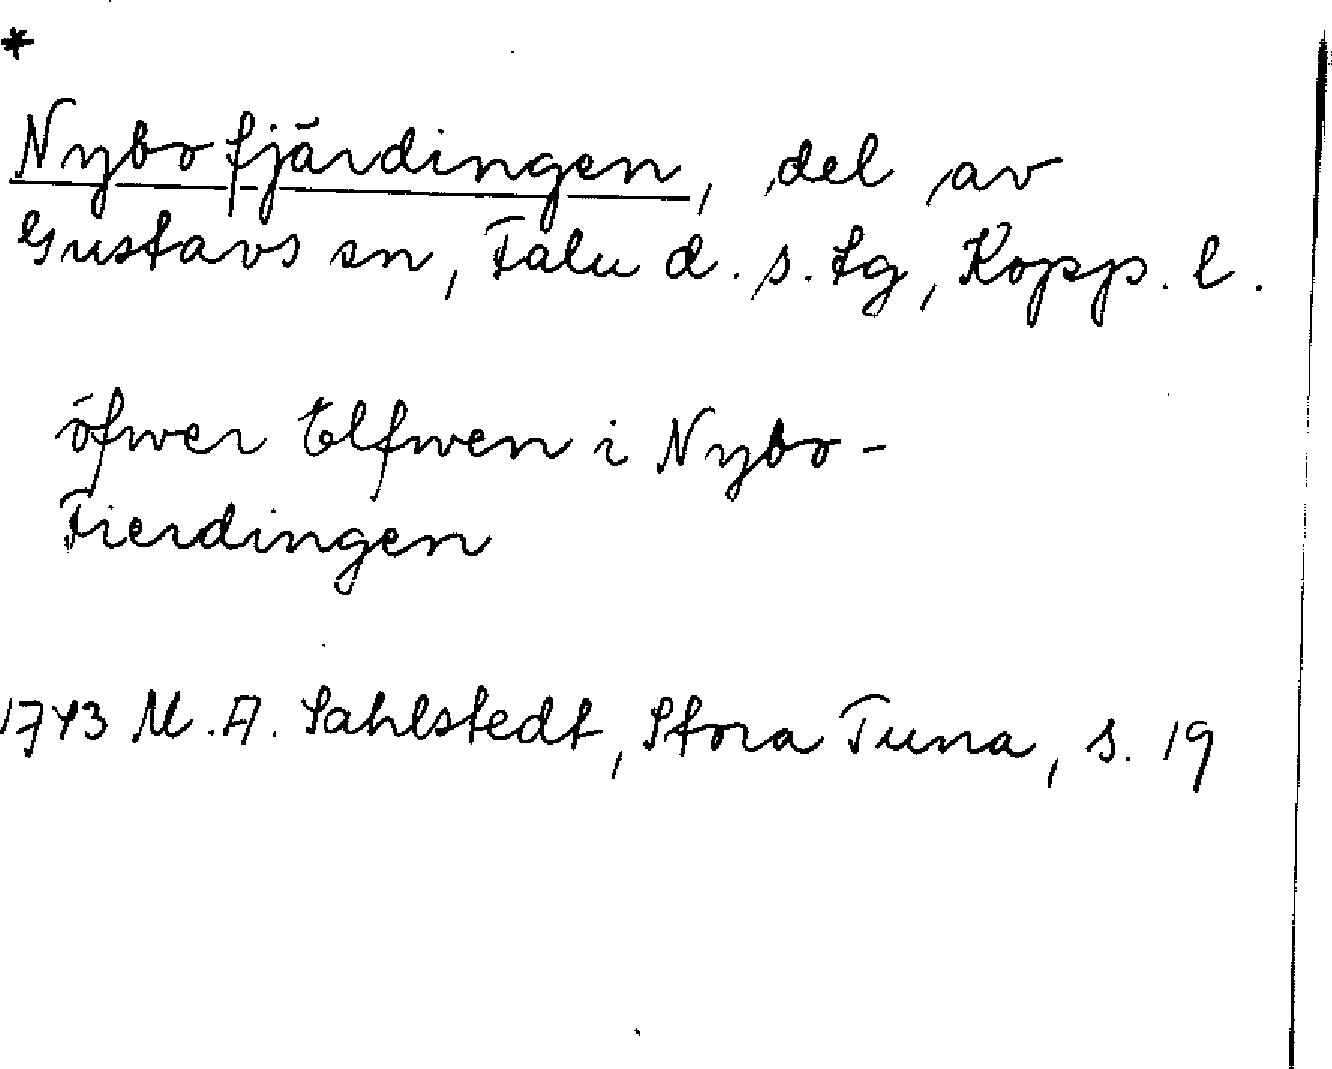 *
Nybofjärdingen, del av
Gustavs sn, Falu d. s. tg, Kopp. l.
öfwer Elfwen i Nybo-
Fierdingen
1743 M. A. Sahlstedt, Stora Tuna, s. 19